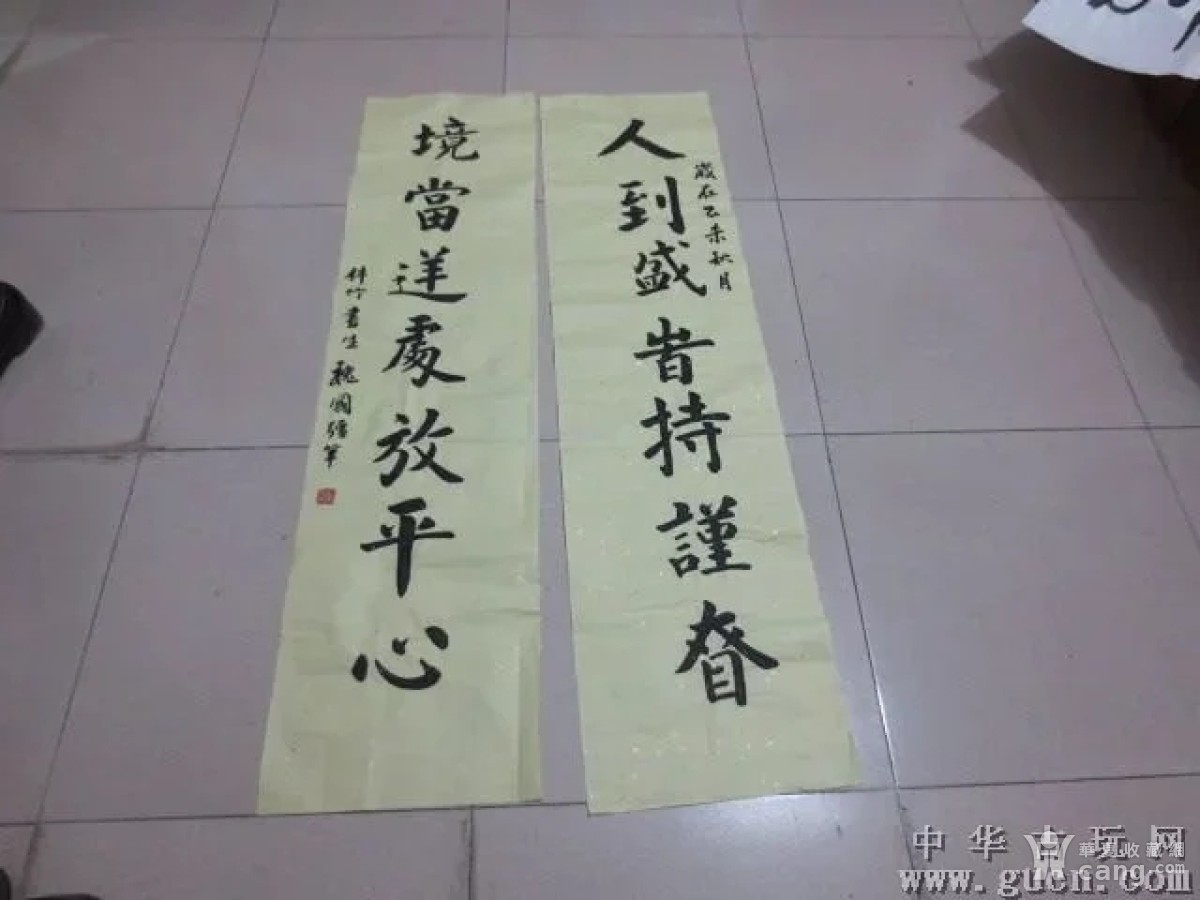 歲在乙未秋月
人到盛旹持謹眘
境當逆處放平心
竹書生 魏國強筆
中华古玩网
www.gucn.com
華夏收藏網
cang.com